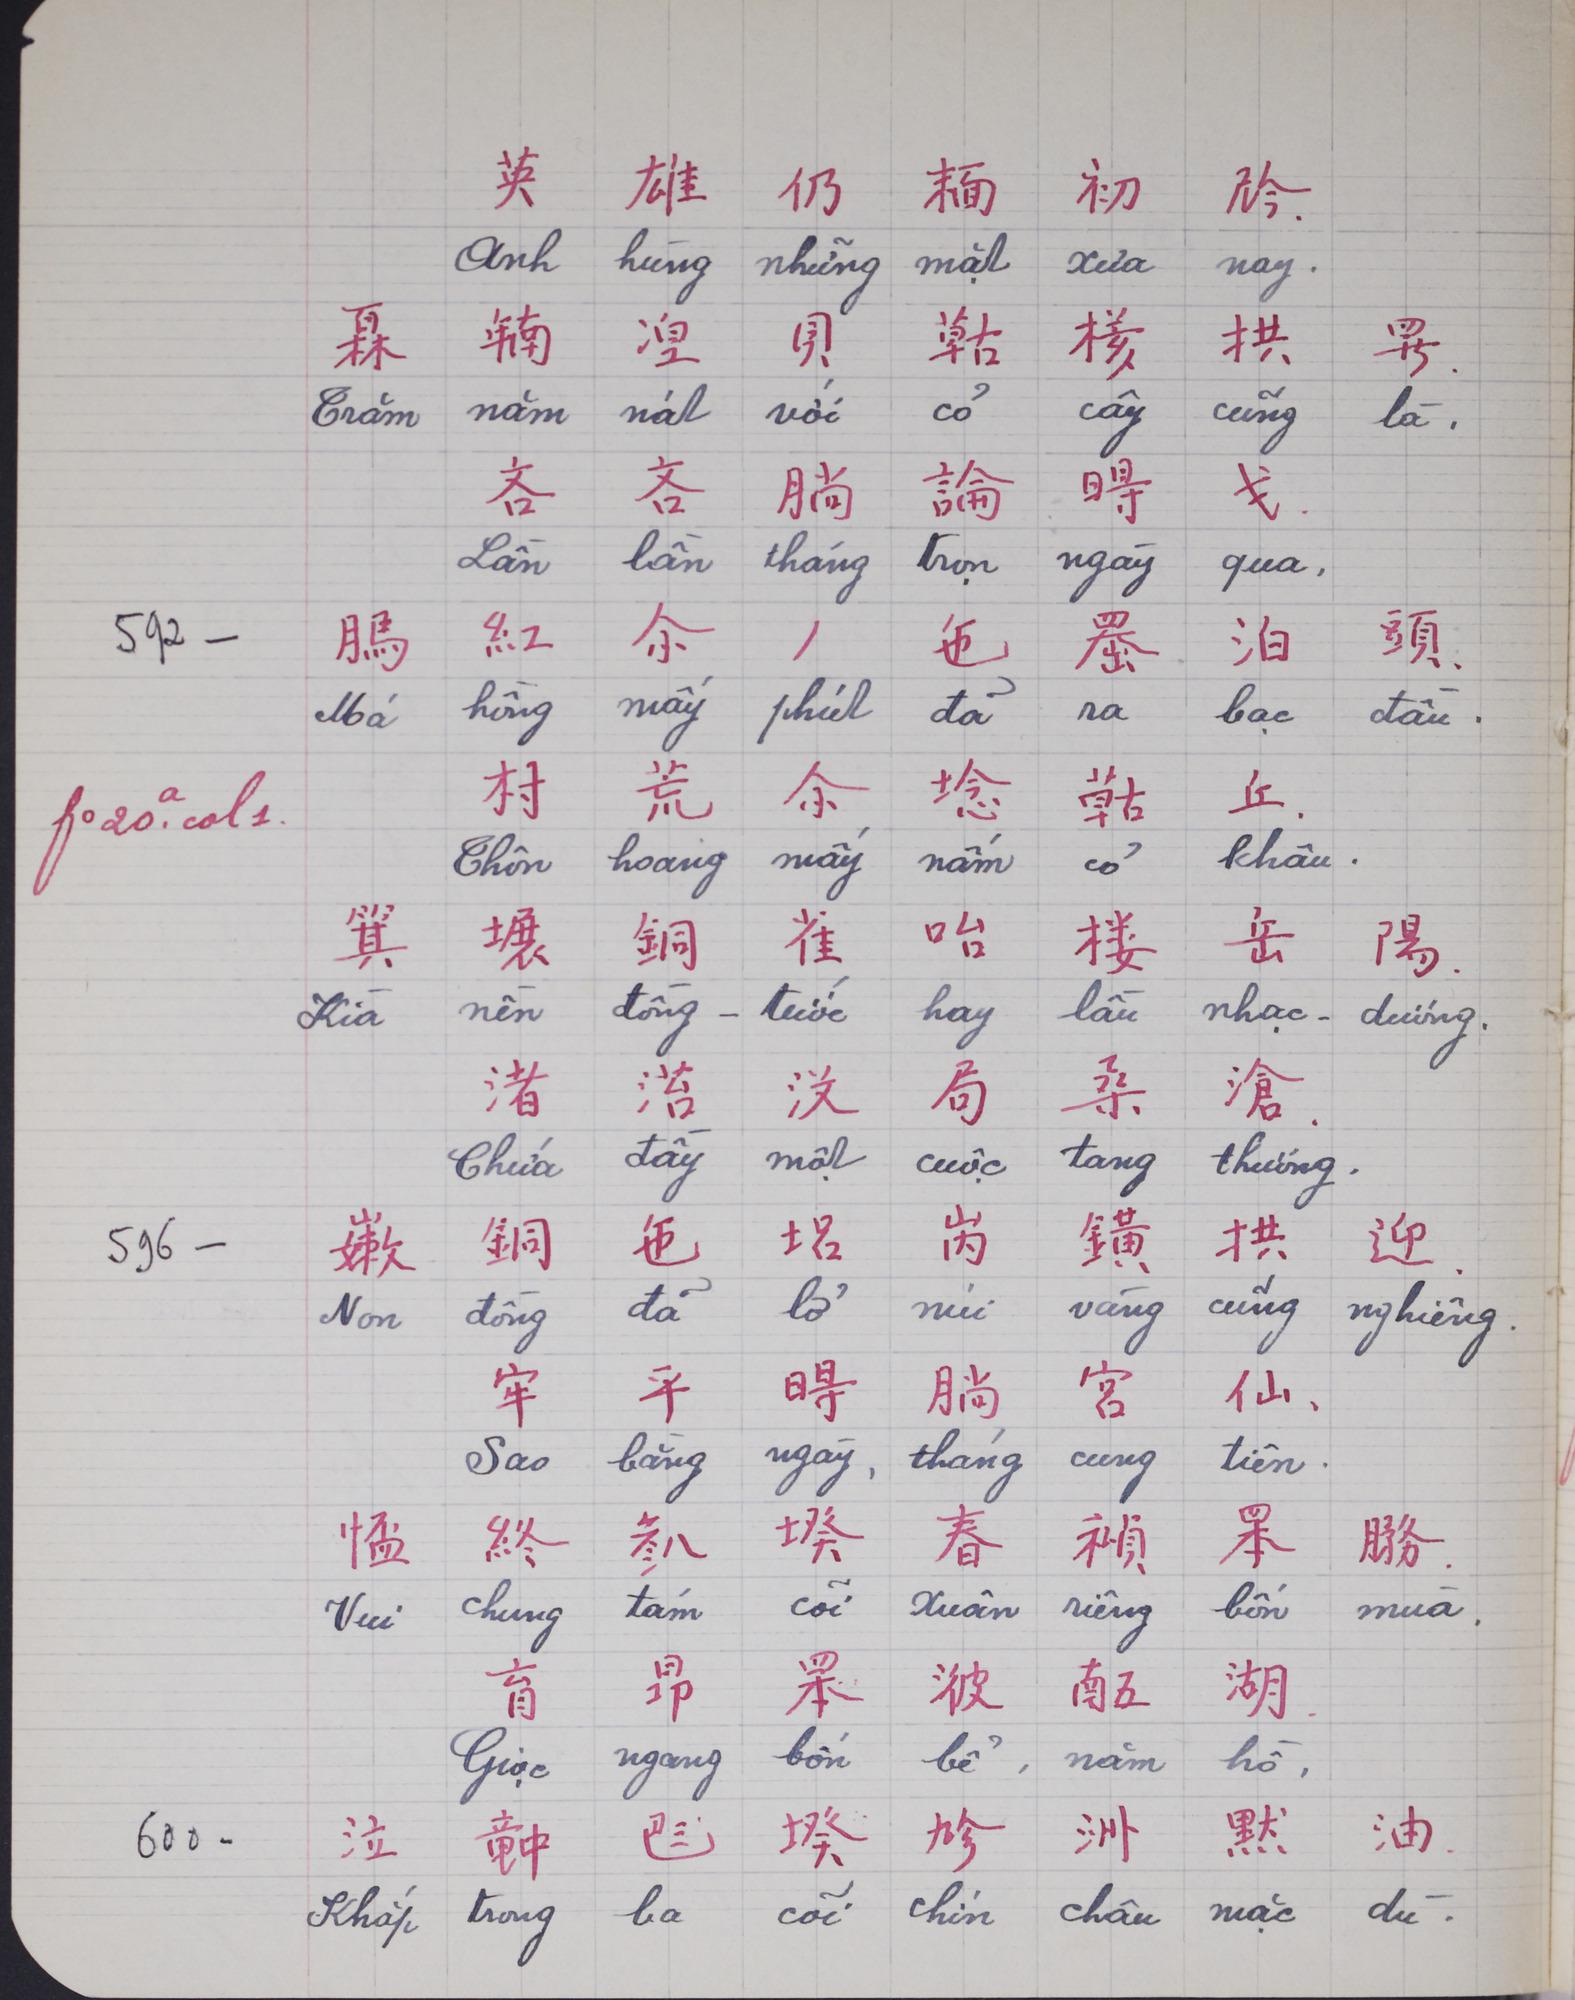 英 雄 仍 𩈘 初 𫢩.
Anh hùng những mặt xưa nay.
𤾓 𢆥 涅 貝 𦹵 核 拱 𱺵.
Trăm năm nát với cỏ cây cũng là.
吝 吝 𣎃 論 𣈗 戈.
Lần lần tháng trọn ngày qua.
592 — 𦟐 紅 余 丿 㐌 𦋦 泊 頭.
Má hồng mấy phút đã ra bạc đầu.
fo 20.a col 1.
村 荒 余 埝 𦹵 丘.
Thôn hoang mấy nấm cỏ khâu.
箕 𡑲 銅 雀 咍 楼 岳 陽.
Kià nền đồng - tước hay lầu nhạc - dương.
渚 滔 没 局 桑 滄.
Chứa đầy một cuộc tang thương.
596 — 𡽫 銅 㐌 垖 𡶀 鐄 拱 迎.
Non đồng đã lở núi vàng cũng nghiêng.
牢 平 𣈗 𣎃 宮 仙.
Sao bằng ngày, tháng cung tiên.
𢝙 終 𠔭 堺 春 𥘶 𦊚 務.
Vui chung tám cõi xuân riêng bốn mùa.
育 昂 𦊚 𣷭 𠄼 湖.
Giọc ngang bốn bể, năm hồ.
600 - 泣 𥪝 𠀧 堺 𠃩 洲 默 油.
Khắp trong ba cõi chín châu mặc dù.